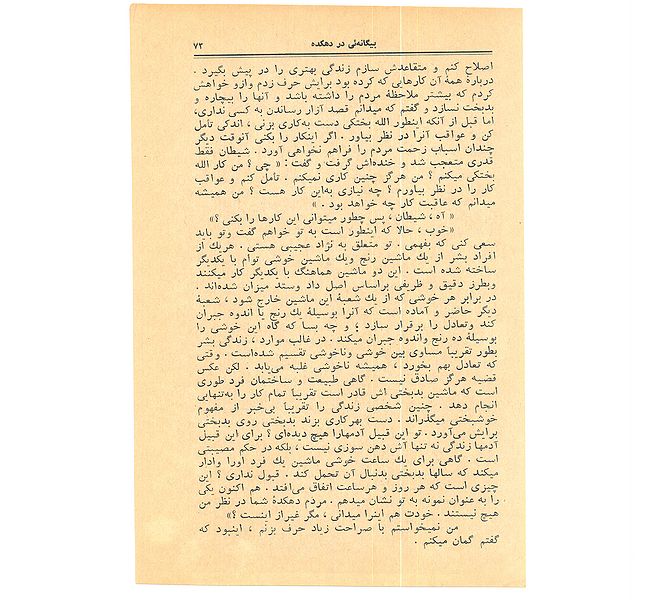 بیگانه‌ئی در دهکده
۷۳
اصلاح کنم و متقاعدش سازم زندگی بهتری را در پیش بگیرد .
درباره همۀ آن کارهایی که کرده بود برایش حرف زدم وازو خواهش
کردم که بیشتر ملاحظۀ مردم را داشته باشد و آنها را بیچاره و
بدبخت نسازد و گفتم که میدانم قصد آزار رساندن به کسی نداری،
اما قبل از آنکه اینطور الله بختکی دست به‌کاری بزنی ، اندکی تأمل
کن و عواقب آنرا در نظر بیاور . اگر اینکار را بکنی آنوقت دیگر
چندان اسباب زحمت مردم را فراهم نخواهی آورد . شیطان فقط
قدری متعجب شد و خنده‌اش گرفت و گفت : « چی ؟ من کار الله
بختکی میکنم ؟ من هرگز چنین کاری نمیکنم . تأمل کنم و عواقب
کار را در نظر بیاورم ؟ چه نیازی به‌این کار هست ؟ من همیشه
میدانم که عاقبت کار چه خواهد بود . »
« آه ، شیطان ، پس چطور میتوانی این کارها را بکنی ؟»
«خوب ، حالا که اینطور است به تو خواهم گفت وتو باید
سعی کنی که بفهمی . تو متعلق به نژاد عجیبی هستی . هریك از
افراد بشر از یك ماشین رنج ویك ماشین خوشی توأم با یکدیگر
ساخته شده است . این دو ماشین هماهنگ با یکدیگر کار میکنند
وبطرز دقیق و ظریفی براساس اصل داد وستد میزان شده‌اند .
در برابر هر خوشی که از یك شعبۀ این ماشین خارج شود ، شعبۀ
دیگر حاضر و آماده است که آنرا بوسیلۀ یك رنج یا اندوه جبران
کند وتعادل را برقرار سازد ؛ و چه بسا که گاه این خوشی را
بوسیلۀ ده رنج واندوه جبران میکند . در غالب موارد ، زندگی بشر
بطور تقریباً مساوی بین خوشی وناخوشی تقسیم شده‌است . وقتی
که تعادل بهم بخورد ، همیشه ناخوشی غلبه می‌یابد . لکن عکس
قضیه هرگز صادق نیست . گاهی طبیعت و ساختمان فرد طوری
است که ماشین بدبختی اش قادر است تقریباً تمام کار را به‌تنهایی
انجام دهد . چنین شخصی زندگی را تقریباً بی‌خبر از مفهوم
خوشبختی میگذراند . دست بهرکاری بزند بدبختی روی بدبختی
برایش می‌آورد . تو این قبیل آدمهارا هیچ دیده‌ای ؟ برای این قبیل
آدمها زندگی نه تنها آش دهن سوزی نیست ، بلکه در حکم مصیبتی
است . گاهی برای یك ساعت خوشی ماشین یك فرد اورا وادار
میکند که سالها بدبختی بدنبال آن تحمل کند . قبول نداری ؟ این
چیزی است که هر روز و هرساعت اتفاق می‌افتد . هم اکنون یکی
را به عنوان نمونه به تو نشان میدهم . مردم دهکدۀ شما در نظر من
هیچ نیستند . خودت هم اینرا میدانی ، مگر غیراز اینست ؟»
من نمیخواستم با صراحت زیاد حرف بزنم ، اینبود که
گفتم گمان میکنم .